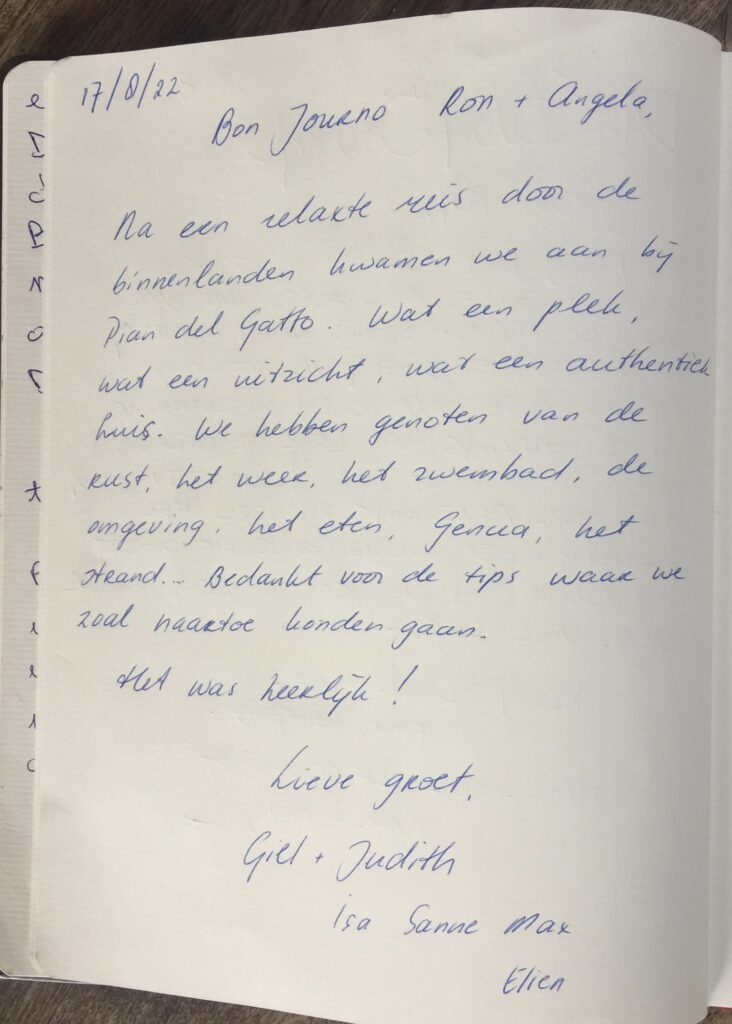 17/8/22
Bon Journo Ron + Angela,
Na een relaxte reis door de
binnenlanden kwamen we aan bij
Pian del Gatto. Wat een plek,
wat een uitzicht, wat een authentiek
huis. We hebben genoten van de
rust, het weer, het zwembad, de
omgeving. het eten, Genua, het
strand... Bedankt voor de tips waar we
zoal naartoe konden gaan.
Het was heerlijk!
Lieve groet,
Giel + Judith
Isa Sanne Max
Elien